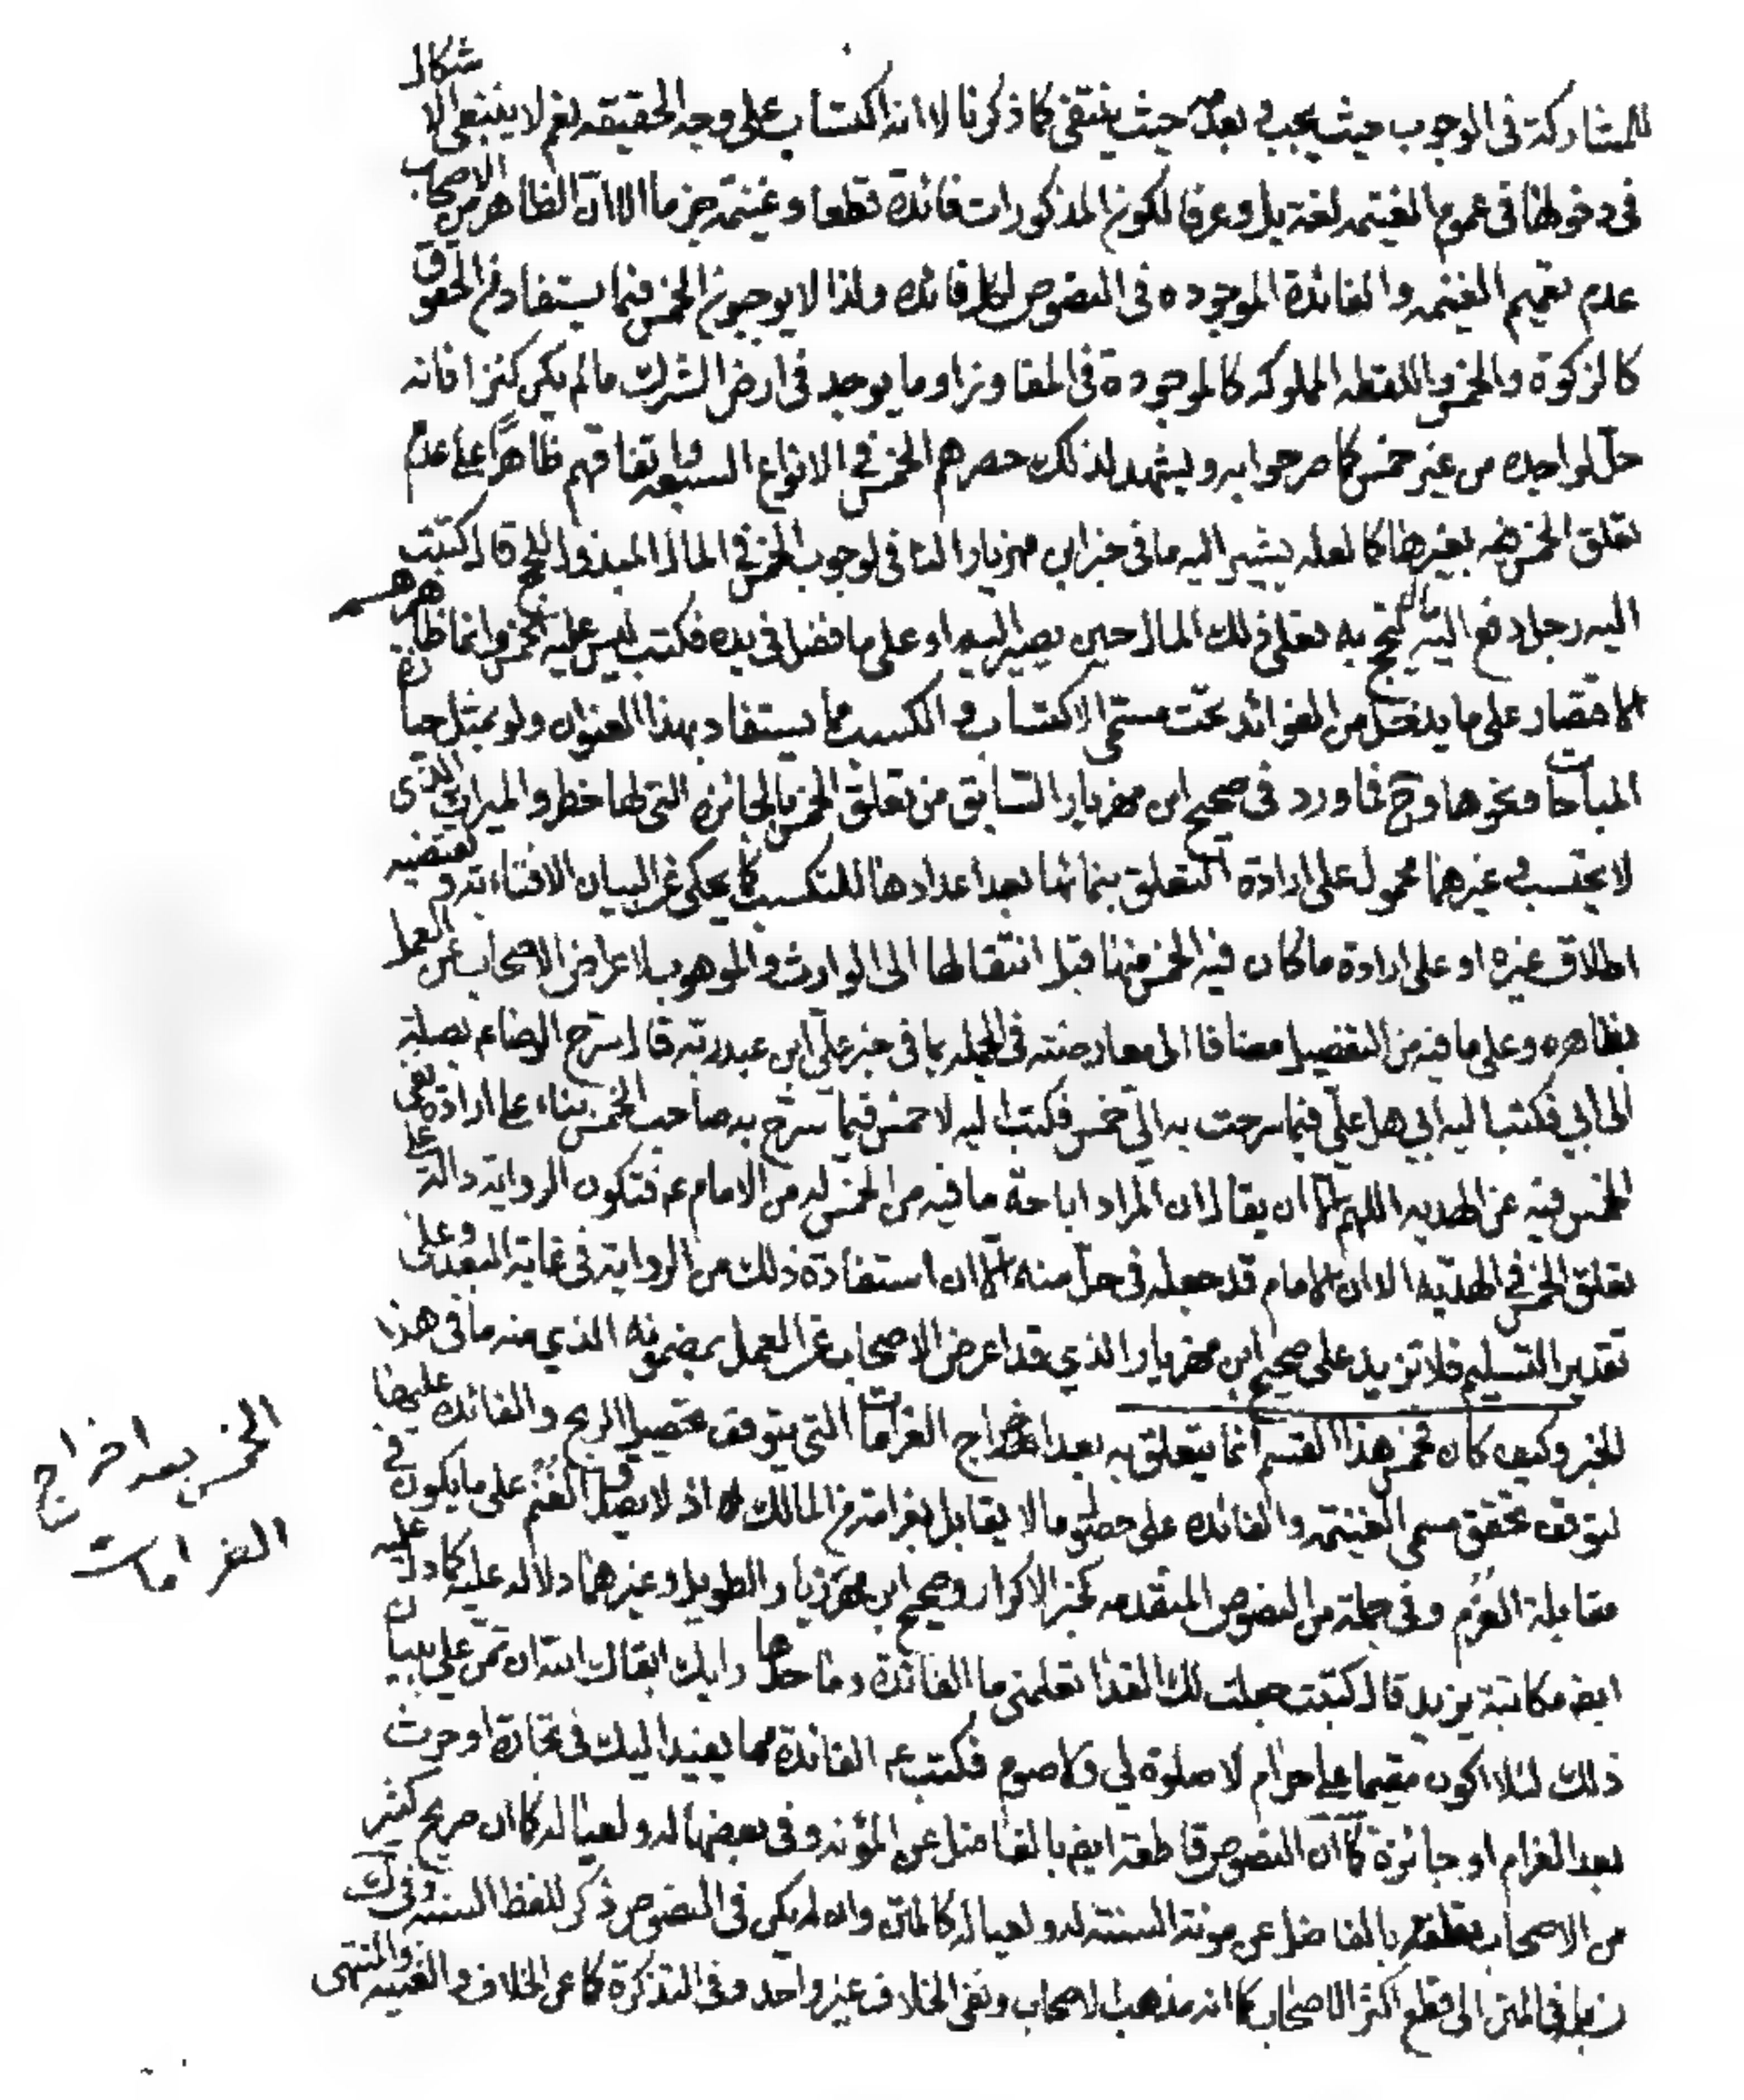 للمشاركة فى الوجوب حيث يجب و بعدمه حيث ينتفى كما ذكرنا لا انه اكتساب على وجه الحقيقه نعم لا ينبغى الاشكال
فى دخولها فى عموم الغنيمه لغة بل وعرفا لكون المذكورات فائدة قطعا وغنيمة جزما الا ان الظاهر من الاصحاب
عدم تعميم الغنيمه والفائدة الموجوده فى النصوص لكل فائده ولذا لا يوجبون الخمس فيما يستفاد من الحقوق
كالزكوة والخمس واللقطه المملوكه كالموجودة فى المفاوز او ما يوجد فى ارض الشرك ما لم يكن كنزا فانه
حلّ لواجده من غير خمس كما صرحوا به ويشهد لذلك حصرهم الخمس فى الانواع السبعه واتفاقهم ظاهرًا على عدم
تعلق الخمس بغيرها كما لعله يشير اليه ما فى خبر ابن مهزيار النافى لوجوب الخمس فى المال المبذول للحج قال كتبت
اليه رجل دفع اليه مال يحج به هل على ذلك المال حين يصير اليه او على ما فضل فى يده فكتب ليس عليه الخمس وانما ظاهرهم
الاقتصار على ما يدخل من الفوائد تحت مسمى الاكتساب و الكسب مما يستفاد بهذا العنوان ولو بمثل حيازة
المباحات ونحوها وح فما ورد فى صحيح ابن مهزيار السابق من تعلق الخمس بالجائزه التى لها خطر والميراث الذى
لا يحتسب و غيرهما محمول على ارادة التعلق بنمائها بعد اعدادها للتكسب كما يحكى عن البيان الافتاء به و يقتضيه
اطلاق غيره او على ارادة ما كان فيه الخمس منها قبل انتقالها الى الوارث والموهوب لاعراض الاصحاب عن العمل
بظاهره وعلى ما فيه من التفصيل مضافا الى معارضته فى الجمله بما فى خبر على ابن عبدربه قال سرّح الرضا ع بصلة
الى ابي فكتب اليه ابي هل علّي فيما سرحت به الّي خمس فكتب اليه لا خمس فيما سرّح به صاحب الخمس بناء على ارادة نفى
الخمس فيه عن الهديه اللهم الا ان يقال ان المراد اباحة ما فيه من الخمس له من الامام ع فتكون الرواية دالة على
تعلق الخمس فى الهديّه الا ان الامام قد جعله فى حلّ منه الا ان استفادة ذلك من الرواية فى غاية البعد وعلى
تقدير التسليم فلا تزيد على صحيح ابن مهزيار الذي قد اعرض الاصحاب عن العمل بمضمونه الذي منه ما فى هذا
الخبر وكيف كان فخمس هذا القسم انما يتعلق به بعد اخراج الغرامات التى يتوقف تحصيل الربح والفائده عليها
لتوقف تحقق مسمى الغنيمه والفائده على حصول ما لا يقابل بغرامة من المالك له اذ لا يصدق الغنم على ما يكون فى
مقابلة الغرم وفى جملة من النصوص المتقدمه كخبر الاكرار وصحيح ابن مهزيار الطويل وغيرهما دلاله عليه كما دل عليه
ايض مكاتبة يزيد قال كتبت جعلت لك الفداء تعلمنى ما الفائدة وما حدها رايك ابقاك الله ان تمن علي ببيان
ذلك لئلا اكون مقيما على حرام لا صلوة لي ولا صوم فكتب ع الفائدة مما يفيد اليك فى تجارة او حرث
بعد الغرام او جائزة كما ان النصوص قاطعة ايض بالفاضل عن المؤنه وفى بعضها له ولعياله كما ان صريح كثير
من الاصحاب تعلقه بالفاضل عن مونة السنة له ولعياله كالمتن وان لم يكن فى النصوص ذكر للفظ السنه وفى ك
بل فى المتن الى قطع اكثر الاصحاب كما انه مذهب الاصحاب ونفى الخلاف غير واحد وفى التذكرة كما عن الخلاف و الغنيه والمنتهى
الخمس بعد اخراج
الغرامات